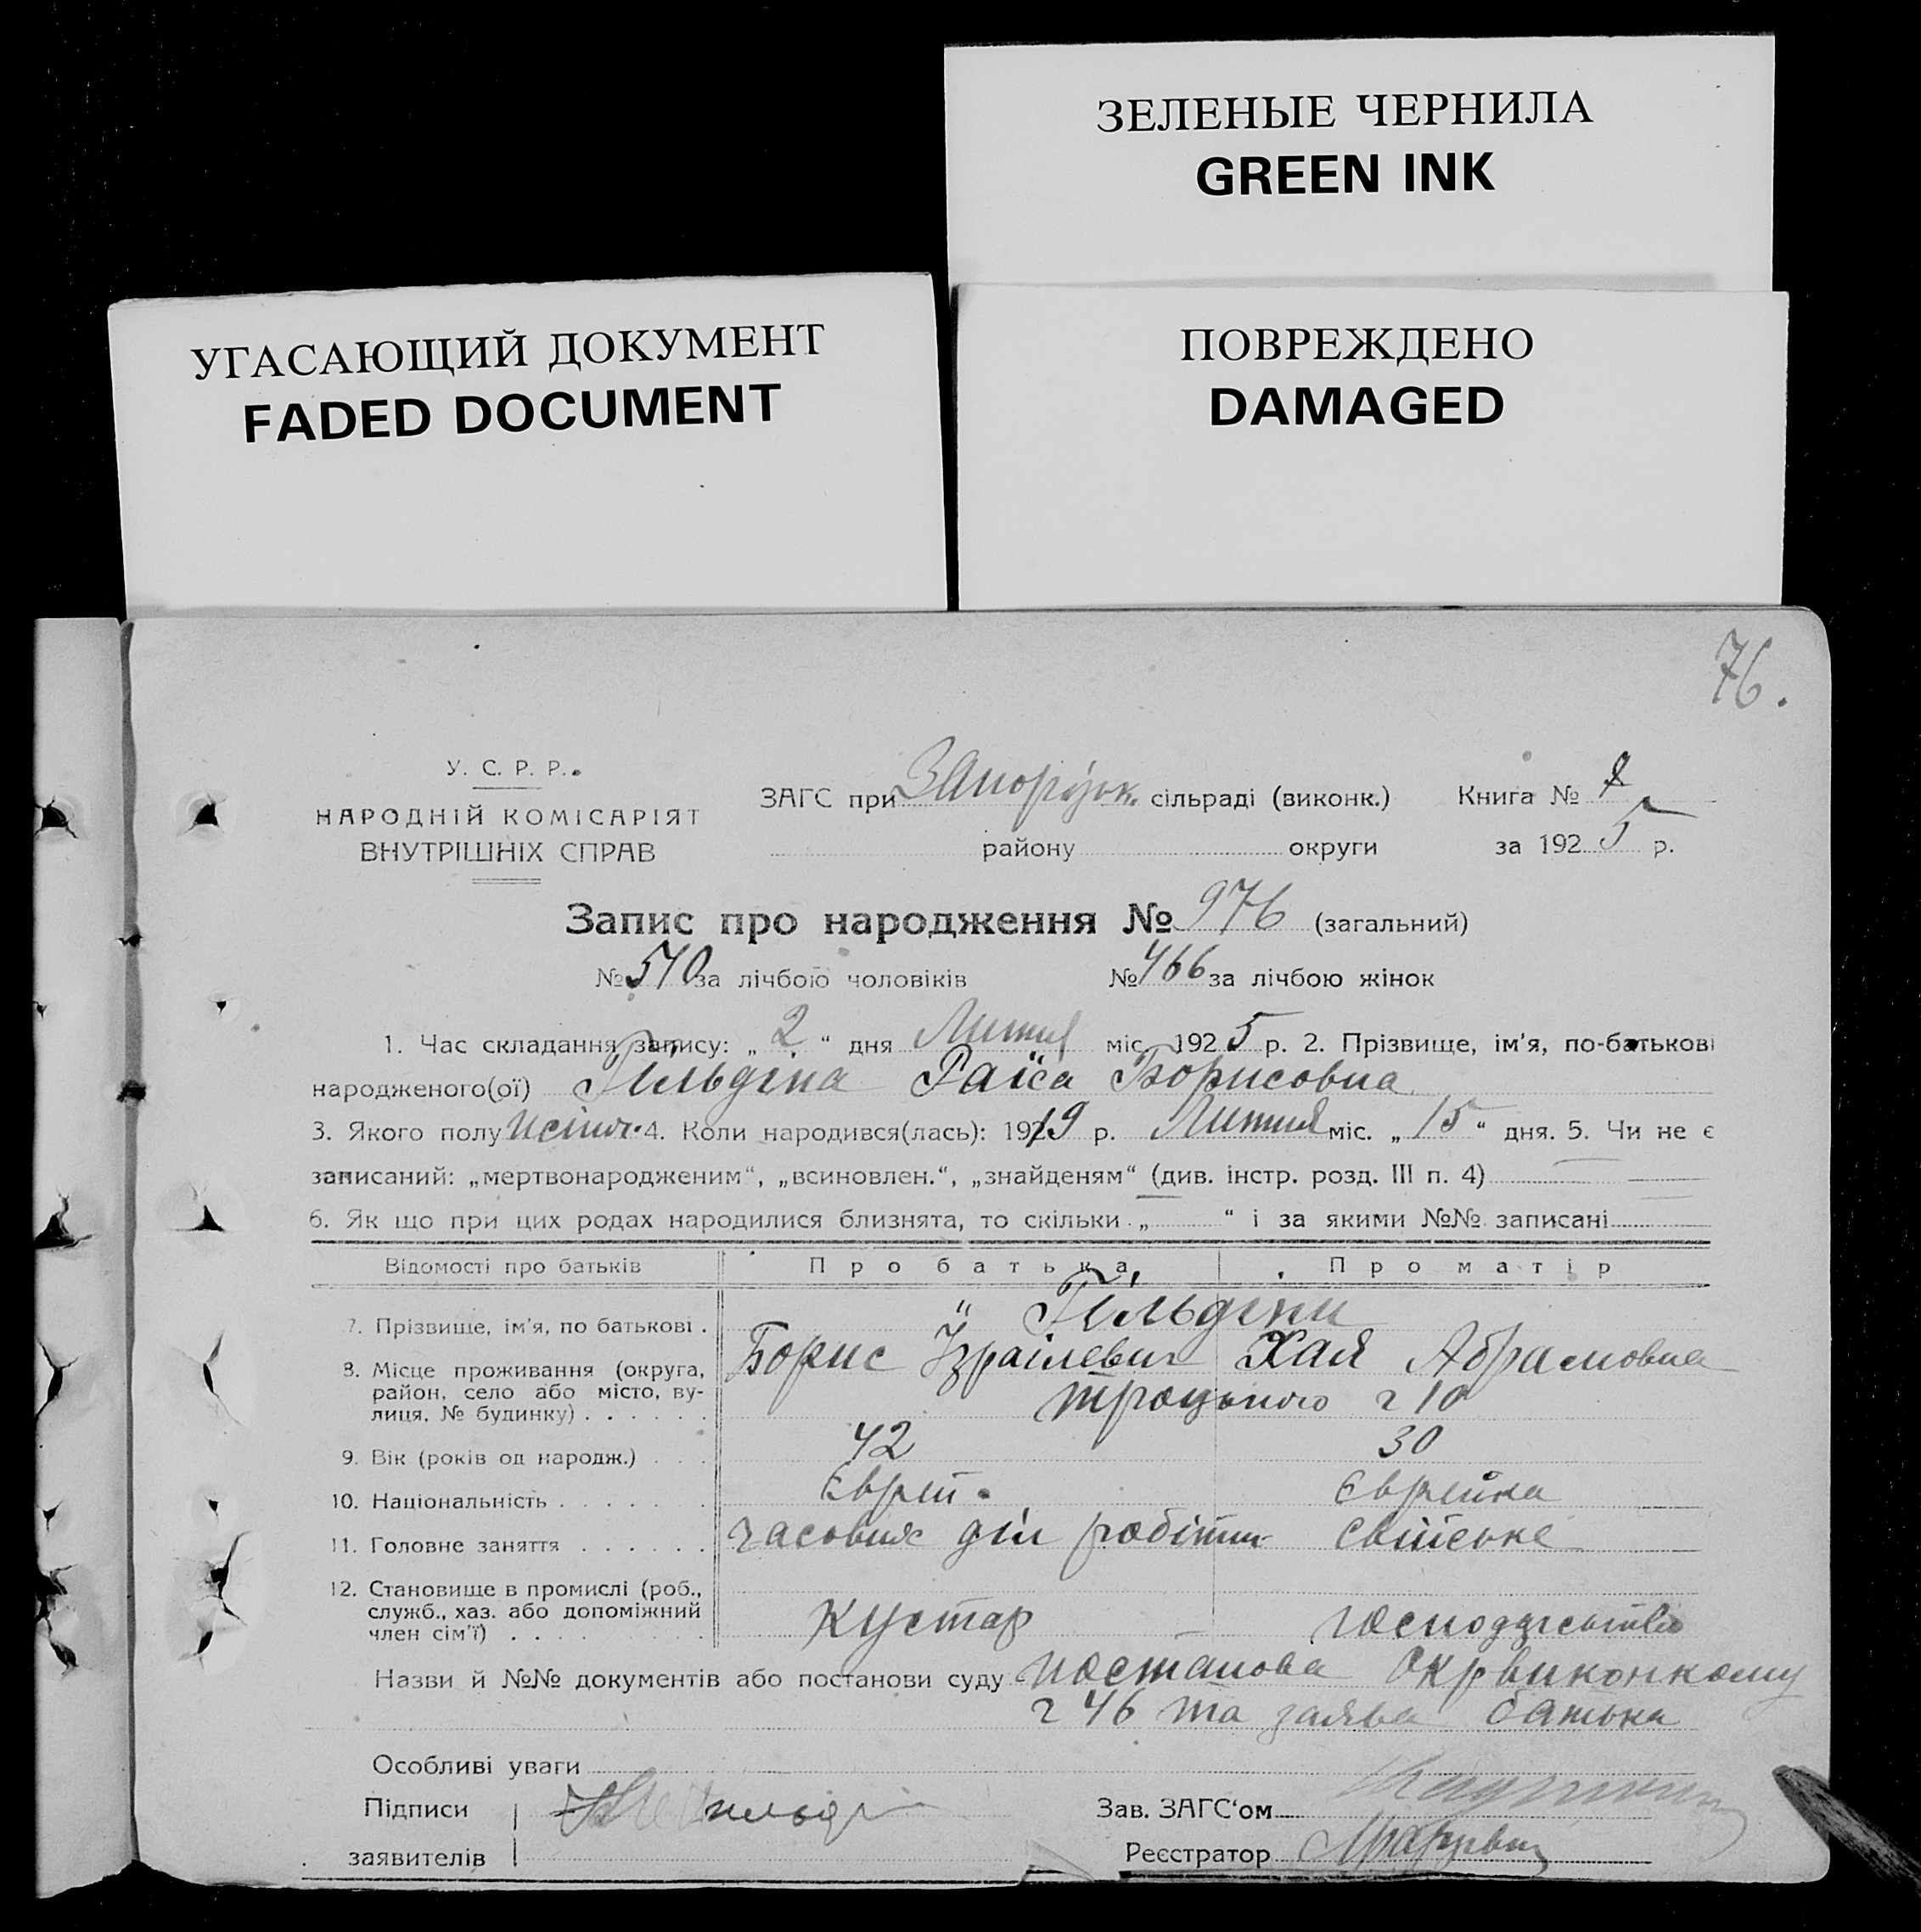 ЗЕЛЕНЫЕ ЧЕРНИЛА
GREEN INK
УГАСАЮЩИЙ ДОКУМЕНТ
FADED DOCUMENT
ПОВРЕЖДЕНО
DAMAGED
76.
У. С. Р. Р.
НАРОДНІЙ КОМІСАРІЯТ
ВНУТРІШНІХ СПРАВ
ЗАГС при Запоріжк. сільраді (виконк.) Книга №
району округи за 1925 р.
Запис про народження № 976 (загальний)
№ 510 за лічбою чоловіків № 466 за лічбою жінок
1. Час складання запису: „2“ дня міс. 1925 р. 2. Прізвище, ім’я, по-батькові
народженого(ої) Гільдіна Раїса Борисовна
3. Якого полу жіноч. 4. Коли народився(лась): 1919 р. міс. „15“ дня. 5. Чи не є
записаний: „мертвонародженим“, „всиновлен.“, „знайденям“ (див. інстр. розд. III п. 4)
6. Як що при цих родах народилися близнята, то скільки „ “ і за якими №№ записані
Відомості про батьків Про батька Про матір
7. Прізвище, ім’я, по батькові . Гільдіни
Борис Ізраілевич Хая Абрамовна
8. Місце проживання (округа,
район, село або місто, ву-
лиця, № будинку) . . . . . . Троцького ч 10
9. Вік (років од народж.) . . . 42 30
10. Національність . . . . . . . Єврей. Єврейка
11. Головне заняття . . . . . . часових діл робітник свійське
12. Становище в промислі (роб.,
служб., хаз. або допоміжний
член сім’ї) . . . . Кустар господарство
Назви й №№ документів або постанови суду постанова Окрвиконкому
ч 46 та заява батька
Особливі уваги
Підписи
заявителів
Зав. ЗАГС‘ом
Реєстратор